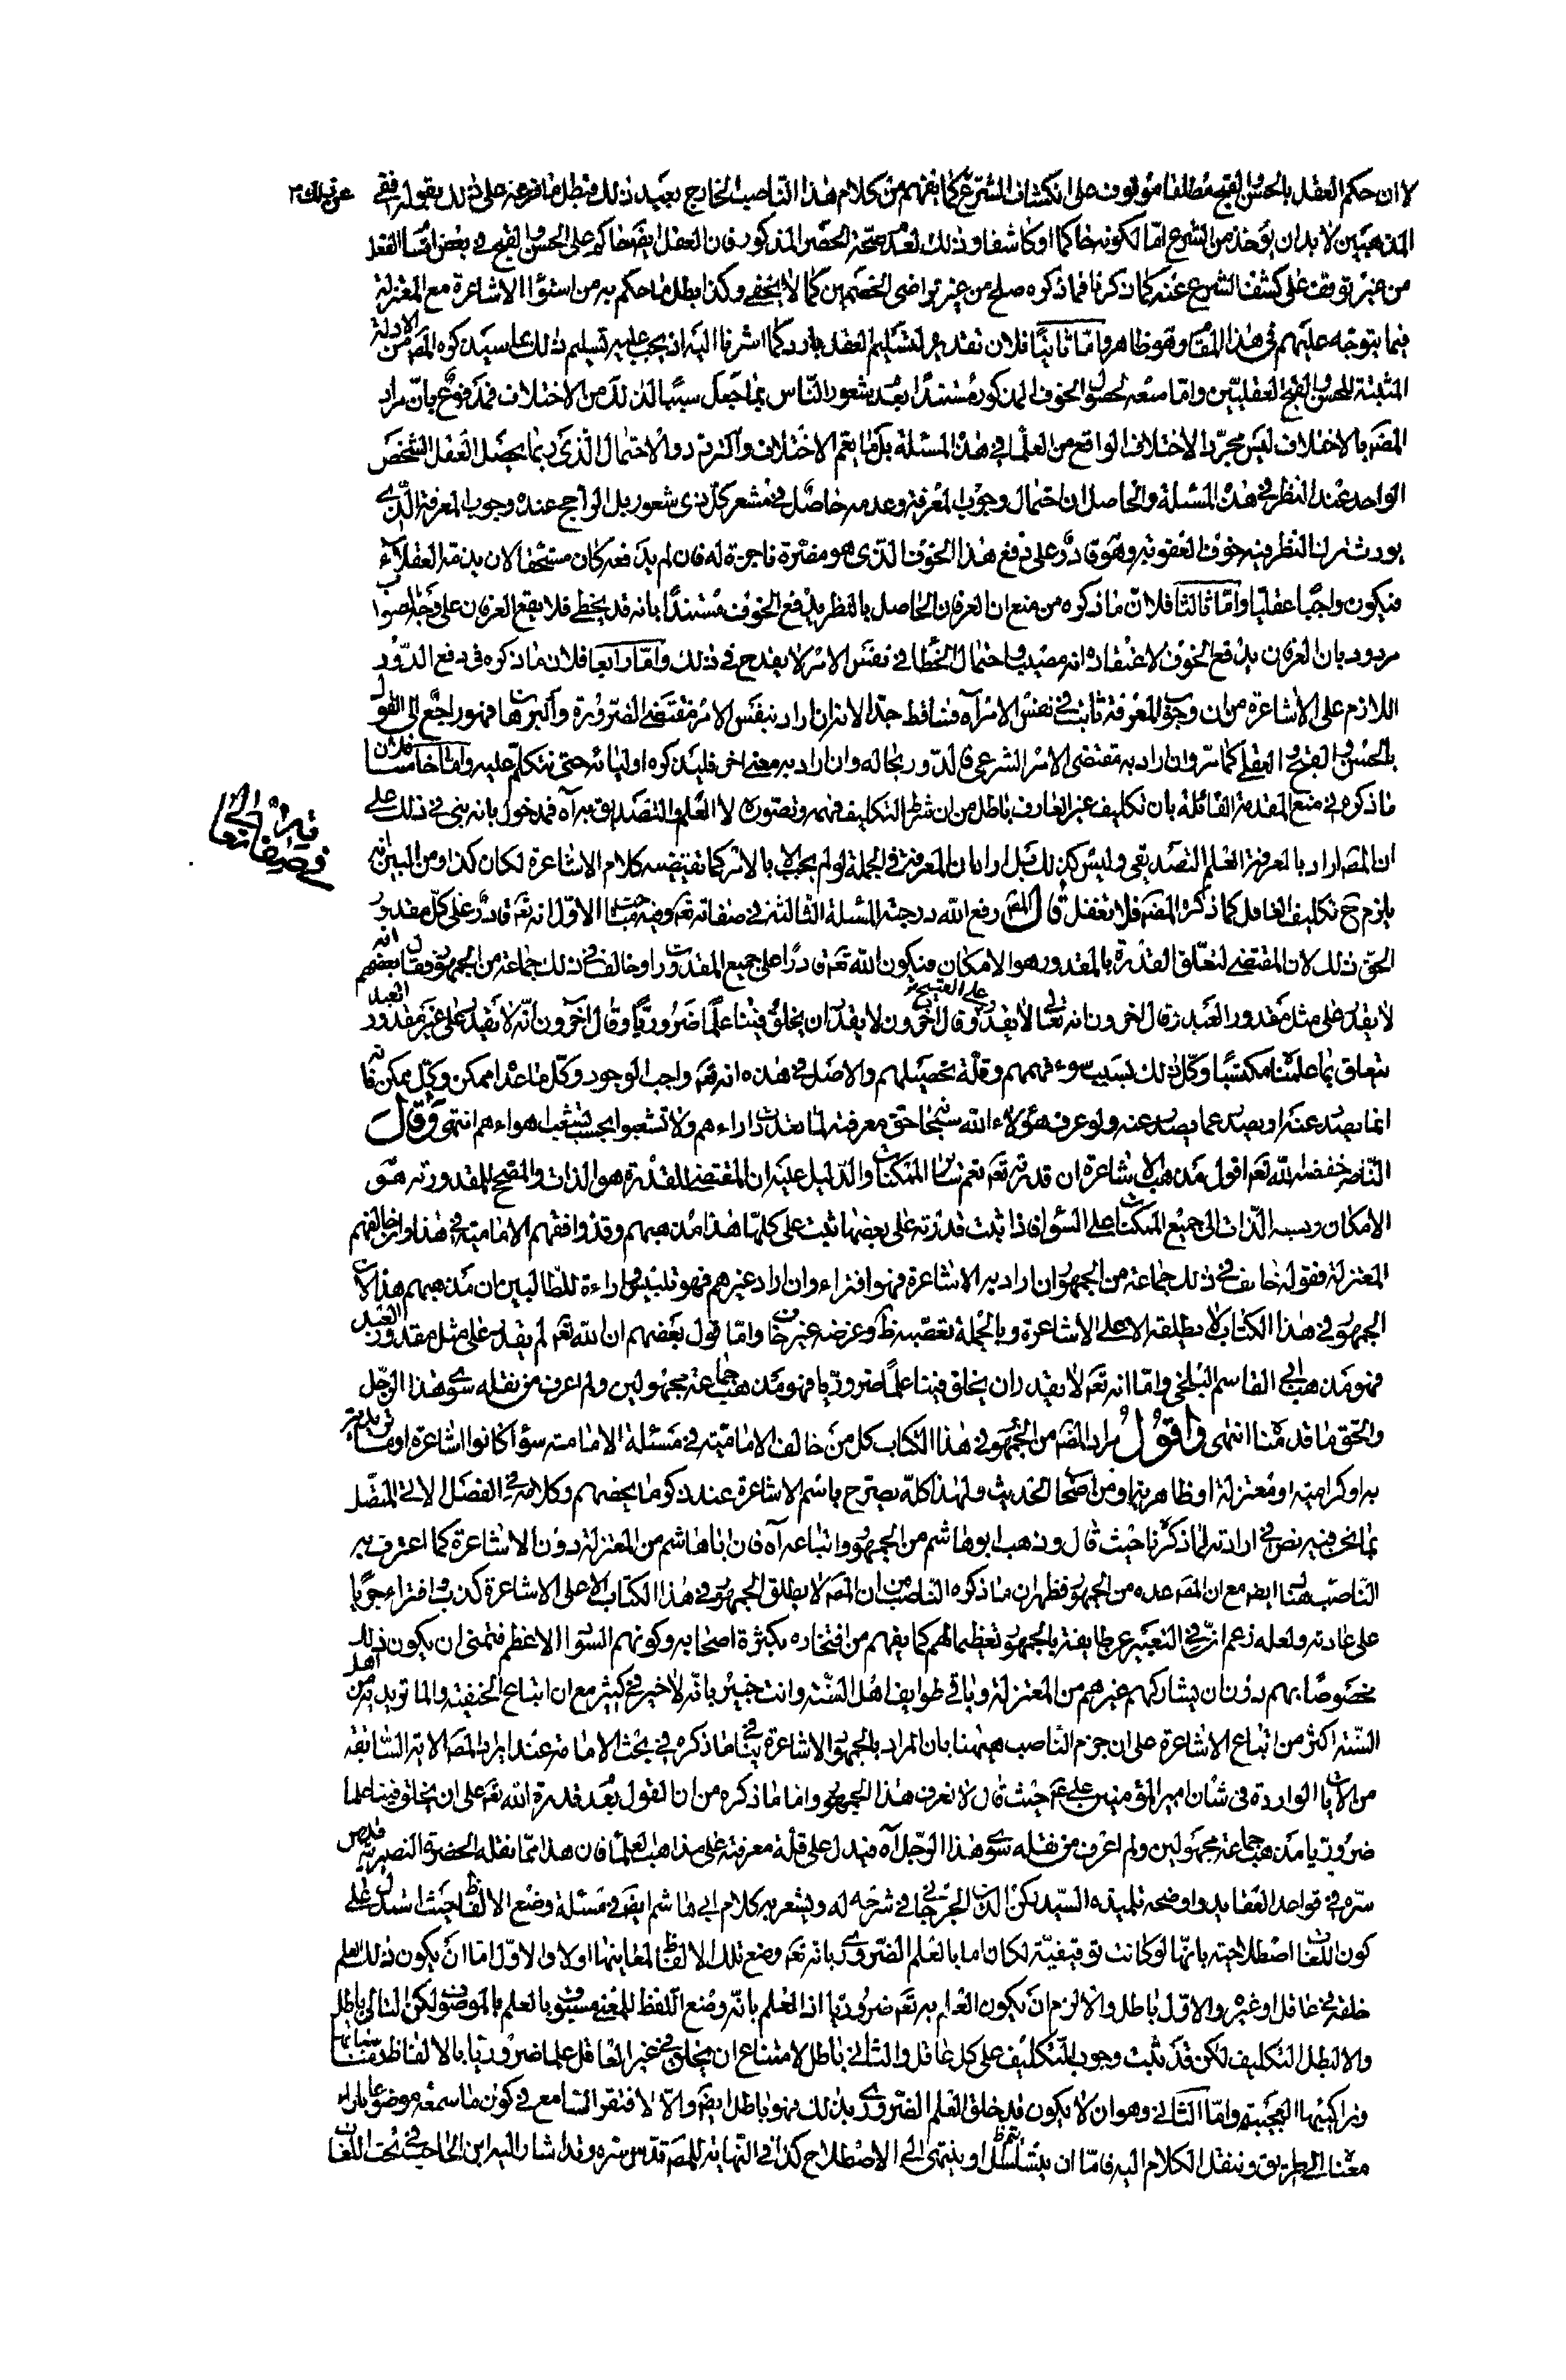 لا ان حكم العقل بالحسن والقبح مطلقا موقوف على انكشاف الشرع كما يفهم من كلام هذا الناصب الخارج بعيد ذلك فبطل ما فرعه على ذلك بقوله ففي
المذهبين لا بد ان يؤخذ من الشرع اما لكونه حاكما او كاشفا وذلك لعدم صحة الحصر المذكور فان العقل ايضا حاكم على الحسن والقبح في بعض اقسام الفعل
من غير توقف على كشف الشرع عنه كما ذكرنا فما ذكره صلح من غير تراضى الخصمين كما لا يخفى وكذا بطل ما حكم به من استواء الاشاعرة مع المعتزلة
فيما يتوجه عليهم في هذا المقام وهو ظاهر واما ثانيا فلان تقدير تسليم العقل بارد كما اشرنا اليه اذ يجب عليه تسليم ذلك لما سيذكره المصه من الادلة
المثبتة للحسن والقبح العقليين واما منعه لحصول الخوف المذكور مستندا بعدم شعور الناس بما جعل سببا لذلك من الاختلاف فمدفوع بان مراد
المصه بالاختلاف ليس مجرد الاختلاف الواقع من العلماء في هذه المسئلة بل ما يعم الاختلاف والتردد والاحتمال الذي ربما يحصل للعقل الشخص
الواحد عند النظر في هذه المسئلة والحاصل ان احتمال وجوب المعرفة وعدمه حاصل في مشعر كل ذي شعور بل الراجح عنده وجوب المعرفة الذي
يورث ترك النظر فيه خوف العقوبة وهو قادر على دفع هذا الخوف الذي هو مضرة ناجزة له فان لم يدفعه كان مستحقا لان يذمه العقلاء
فيكون واجبا عقليا واما ثالثا فلان ما ذكره من منع ان العرفان الحاصل بالنظر يدفع الخوف مستندا بانه قد يخطى فلا يقع العرفان على وجه الصواب
مردود بان العرفان يدفع الخوف لاعتقاده انه مصيب واحتمال الخطا في نفس الامر لا يقدح في ذلك واما رابعا فلان ما ذكره في دفع الدور
اللازم على الاشاعرة من ان وجوب المعرفة ثابت في نفس الامر آه فساقط جدا لانه ان اراد بنفس الامر مقتضى الضرورة والبرهان فهو راجع الى القول
بالحسن والقبح العقلي كما مر وان اراد به مقتضى الامر الشرعي فالدور بحاله وان اراد به معنى اخر فليذكره اوليائه حتى نتكلم عليه واما خامسا فلان
ما ذكره في منع المقدمة القائلة بان تكليف غير العارف باطل من ان شرط التكليف فهمه وتصوره لا العلم والتصديق به آه فمدخول بانه بنى في ذلك على
ان المصه اراد بالمعرفة العلم التصديقي وليس كذلك بل اراد ان المعرفة في الجملة لو لم يجب الا بالامر كما يقتضيه كلام الاشاعرة لكان كذا ومن البين انه
يلزم ح تكليف الغافل كما ذكره المصه فلا تغفل قال المصه رفع الله درجته المسئلة الثالثة في صفاته تعه وفيه مباحث الاول انه تعه قادر على كل مقدور
الحق ذلك لان المقتضى لتعلق القدرة بالمقدور هو الامكان فيكون الله تعه قادرا على جميع المقدورات وخالف في ذلك جماعة من الجمهور فقال بعضهم انه
لا يقدر على مثل مقدور العبد وقال اخرون انه تعالى لا يقدر على القبيح وقال اخرون لا يقدر ان يخلق فينا علما ضروريا وقال اخرون انه لا يقدر على غير مقدور العبد
يتعلق بما علمناه مكتسبا وكل ذلك بسبب سوء فهمهم وقلة تحصيلهم والاصل في هذه انه تعه واجب الوجود وكل ما عداه ممكن وكل ممكن فانه
انما يصدر عنه او يصدر عما يصدر عنه ولو عرف هؤلاء الله سبحانه حق معرفته لما تعددت اراءهم ولا تشعبوا بحسب تشعب اهواءهم انتهى وقال
الناصب خفضه الله تعه اقول مذهب الاشاعرة ان قدرته تعه تعم سائر الممكنات والدليل عليه ان المقتضى للقدرة هو الذات والمصحح للمقدورية هو
الامكان ونسبة الذات الى جميع الممكنات على السواء فاذا ثبت قدرته على بعضها ثبت على كلها هذا مذهبهم وقد وافقهم الامامية في هذا وان خالفهم
المعتزلة فقوله خالف في ذلك جماعة من الجمهور ان اراد به الاشاعرة فهو افتراء وان اراد غيرهم فهو تلبيس واراءة للطالبين ان مذهبهم هذا لان
الجمهور في هذا الكتاب لا يطلقه الا على الاشاعرة وبالجملة تعصبه ظ وغرضه غير خاف واما قول بعضهم ان الله تعه لم يقدر على مثل مقدور العبد
فهو مذهب ابي القاسم البلخي واما انه تعه لا يقدر ان يخلق فينا علما ضروريا فهو مذهب جماعة مجهولين ولم اعرف من نقله سوى هذا الرجل
والحق ما قدمنا انتهى واقول مراد المصه من الجمهور في هذا الكتاب كل من خالف الامامية في مسئلة الامامة سواء كانوا اشاعرة او ماتريدية
او كرامية او معتزلة او ظاهرية او من اصحاب الحديث ولهذا كله يصرح باسم الاشاعرة عند ذكر ما يخصهم وكلامه في الفصل الاتي المتصل
بما نحن فيه نص في ارادته لما ذكرنا حيث قال وذهب ابو هاشم من الجمهور واتباعه آه فان ابا هاشم من المعتزلة دون الاشاعرة كما اعترف به
الناصب هنا ايضا مع ان المصه عده من الجمهور فظهر ان ما ذكره الناصب من ان المصه لا يطلق الجمهور في هذا الكتاب الا على الاشاعرة كذب وافتراء جريا
على عادته ولعله زعم ان في التعبير عن طايفته بالجمهور تعظيما لهم كما يفهم من افتخاره بكثرة اصحابه وكونهم السواد الاعظم فتمنى ان يكون ذلك
مخصوصا بهم دون ان يشاركهم غيرهم من المعتزلة وباقي طوايف اهل السنة وانت خبير بانه لا خير في كثير مع ان اتباع الحنفية والماتريدية من اهل
السنة اكثر من اتباع الاشاعرة على ان جزم الناصب ههنا بان المراد بالجمهور الاشاعرة ينافي ما ذكره في بحث الامامة عند ايراد المصه الاية السابقة
من الايات الواردة في شان امير المؤمنين علي عم حيث قال لا نعرف هذا الجمهور واما ما ذكره من ان القول بعدم قدرة الله تعه على ان يخلق فينا علما
ضروريا مذهب جماعة مجهولين ولم اعرف من نقله سوى هذا الرجل آه فيدل على قلة معرفته على مذاهب العلماء فان هذا مما نقله الحضرة النصيرية قدس
سره في قواعد العقايد واوضحه تلميذه السيد ركن الدين الجرجاني في شرحه له ويشعر به كلام ابي هاشم ايضا في مسئلة وضع الالفاظ حيث استدل على
كون اللغات اصطلاحية بانها لو كانت توقيفية لكان اما بالعلم الضروري بانه تعه وضع تلك الالفاظ لمعانيها اولا والاول اما ان يكون ذلك العلم
خلقه في عاقل او غيره والاول باطل والا لزم ان يكون العلم به تعه ضروريا اذ العلم بانه وضع اللفظ للمعنى مسبوق بالعلم بالموصوف لكن التالي باطل
والا لبطل التكليف لكن قد ثبت وجوب التكليف على كل عاقل والثاني باطل لامتناع ان يخلق في غير العاقل علما ضروريا بالالفاظ ومناسباتها
وتراكيبها العجيبة واما الثاني وهو ان لا يكون قد خلق العلم الضروري بذلك فهو باطل ايضا والا لافتقر السامع في كون ما سمعه موضوعا بازاء
معناه الى طريق وننقل الكلام اليه فاما ان يتسلسل او ينتهى الى الاصطلاح كذا في النهاية للمصه قدس سره وقد اشار اليه ابن الحاجب في بحث اللغات
في صفاته تعالى